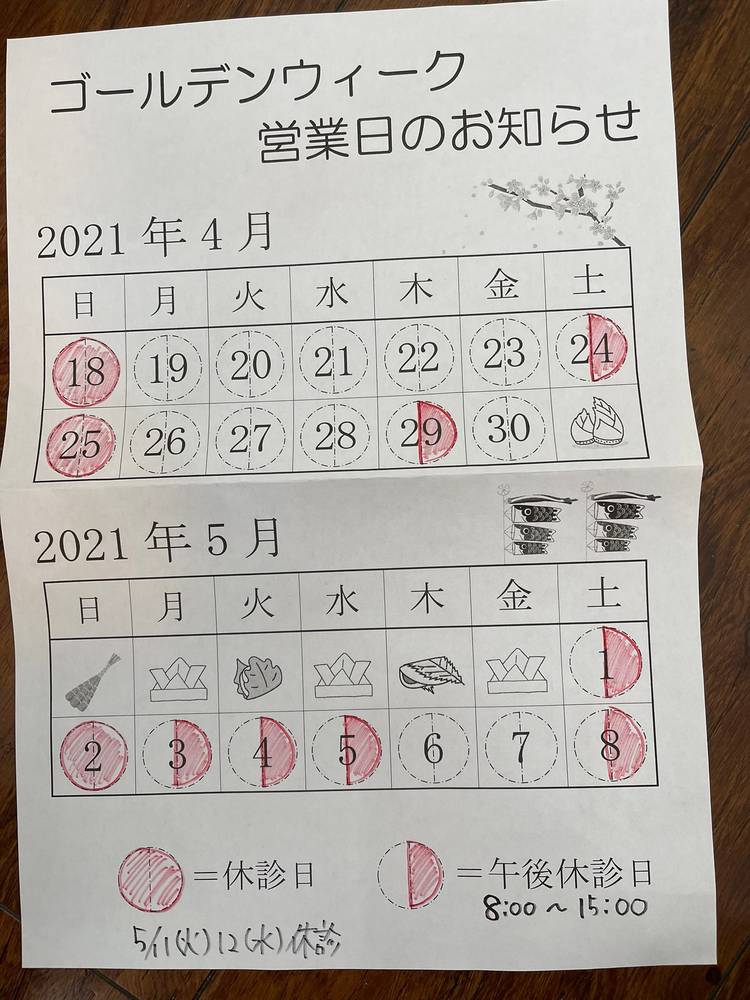 ゴールデンウィーク
営業日のお知らせ
2021年4月
日 月 火 水 木 金 土
18 19 20 21 22 23 24
25 26 27 28 29 30
2021年5月
日 月 火 水 木 金 土
1
2 3 4 5 6 7 8
=休診日 =午後休診日
8:00～15:00
5/11(火)12(水)休診